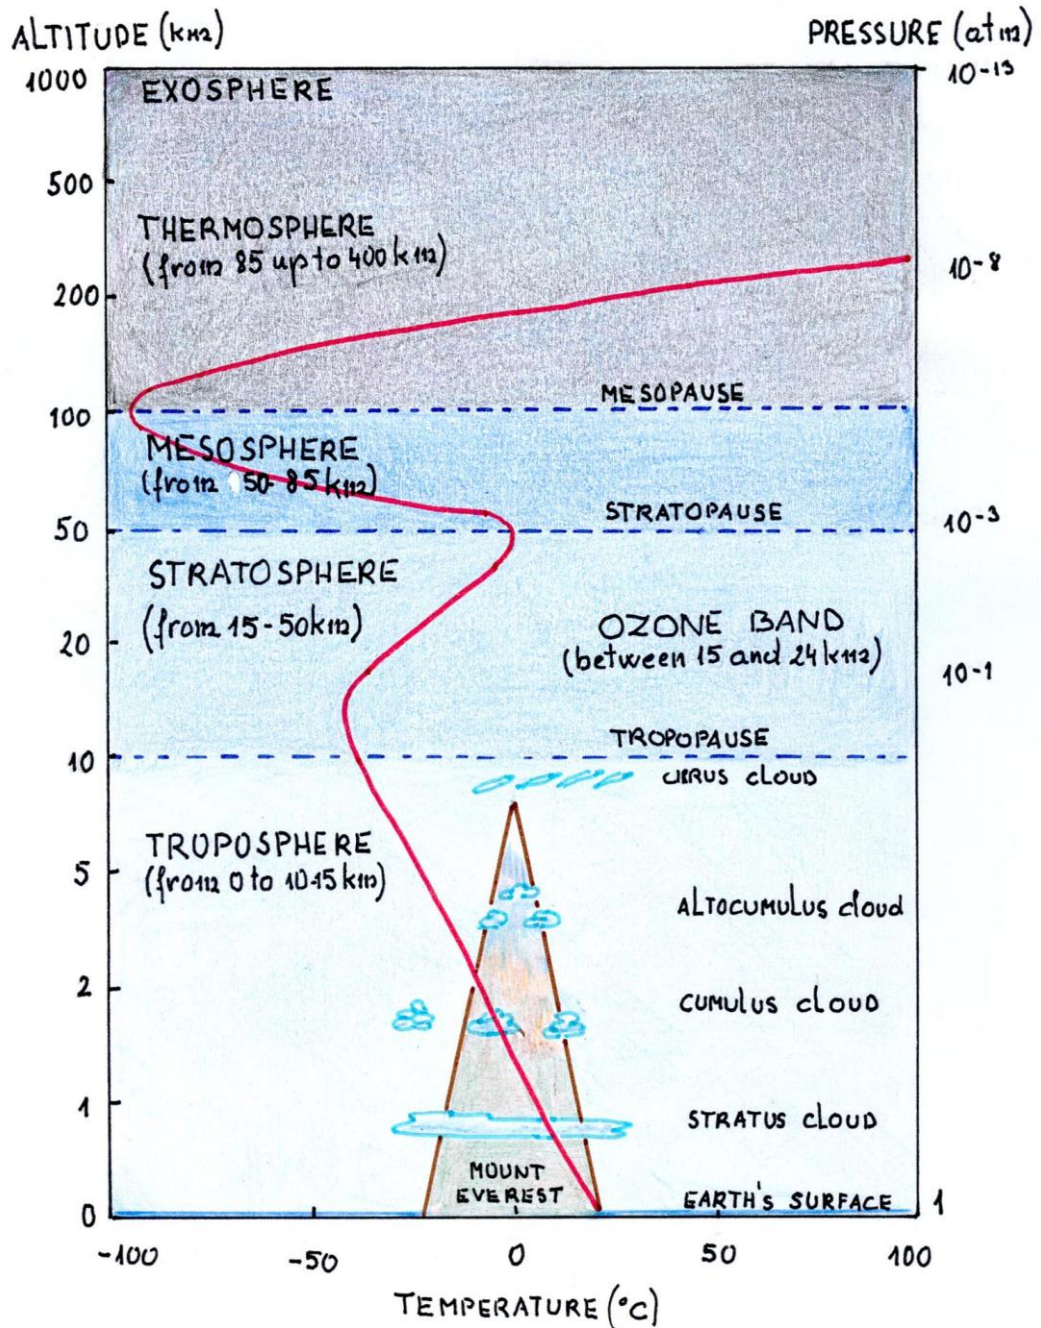 ALTITUDE (km)
PRESSURE (atm)
1000
EXOSPHERE
10-13
500
THERMOSPHERE
(from 85 up to 400 km)
10-8
200
MESOPAUSE
100
MESOSPHERE
(from 50-85 km)
STRATOPAUSE
10-3
50
STRATOSPHERE
(from 15-50km)
OZONE BAND
(between 15 and 24 km)
20
10-1
TROPOPAUSE
10
CIRRUS CLOUD
TROPOSPHERE
(from 0 to 10-15 km)
5
ALTOCUMULUS cloud
2
CUMULUS CLOUD
1
STRATUS CLOUD
MOUNT
EVEREST
EARTH'S SURFACE
1
0
-100 -50 0 50 100
TEMPERATURE (°C)